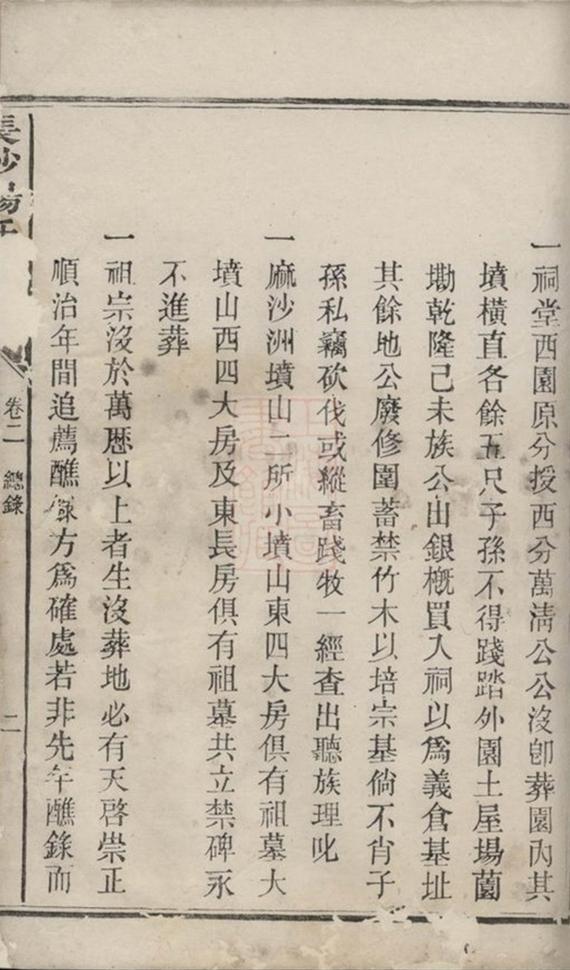 一祠堂西園原分授西分萬淸公公沒卽葬園內其
墳橫直各餘五尺子孫不得踐踏外園土屋場薗
墈乾隆己未族公出銀槪買入祠以爲義倉基址
其餘地公廢修圍蓄禁竹木以培宗基倘不肖子
孫私竊砍伐或縱畜踐牧一經查出聽族理叱
一麻沙洲墳山二所小墳山東四大房俱有祖墓大
墳山西四大房及東長房俱有祖墓共立禁碑永
不進葬
一祖宗沒於萬歷以上者生沒葬地必有天啓崇正
順治年間追薦醮錄方爲確處若非先年醮錄而
長沙
卷二 總錄 二